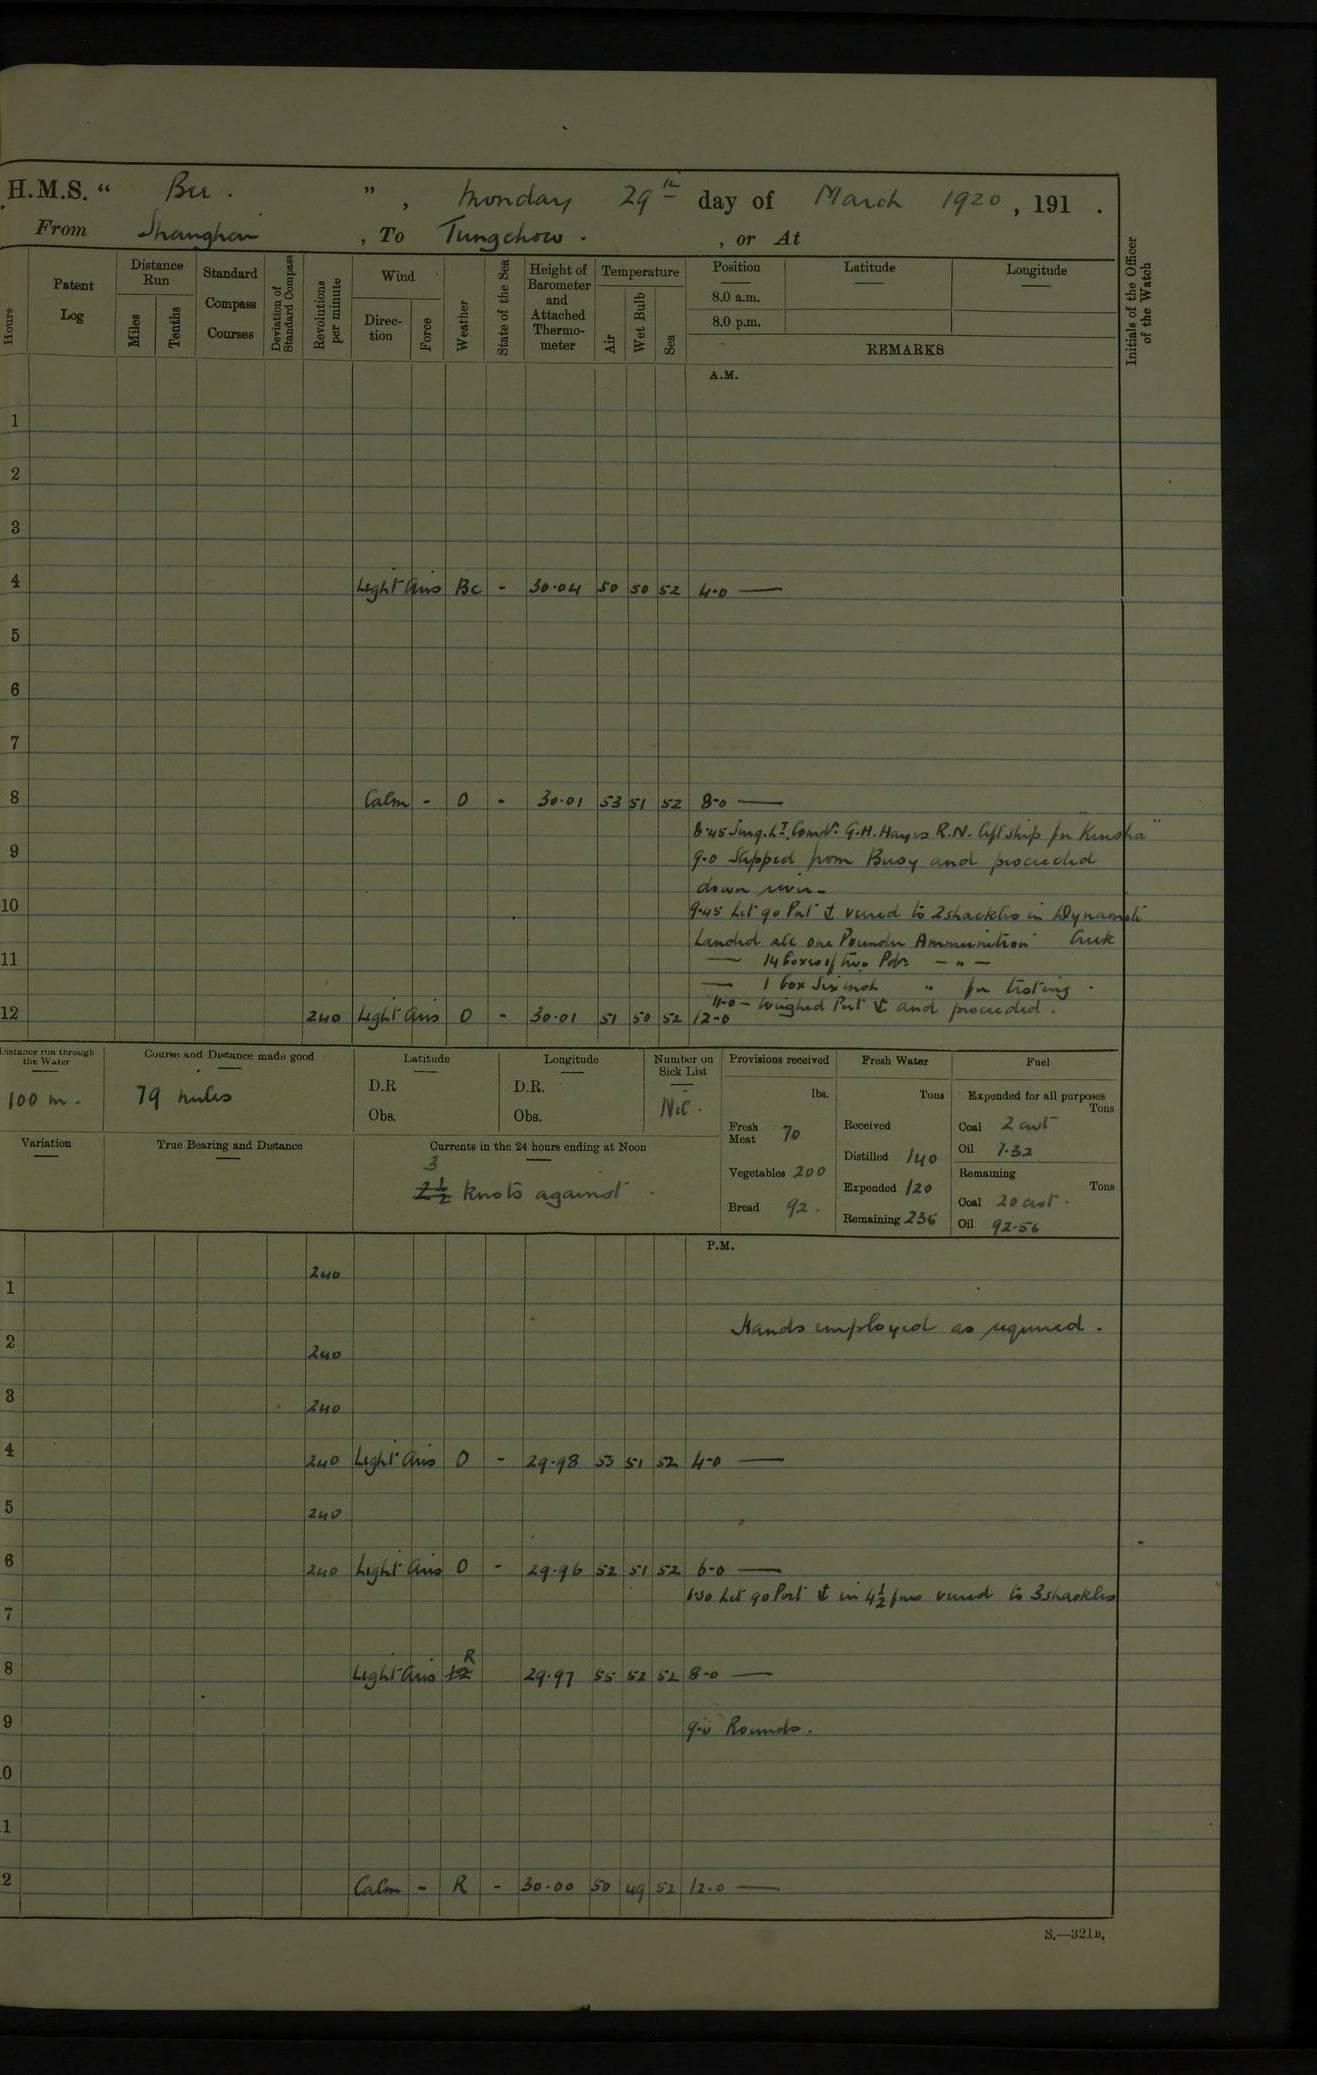 H.M.S. “ Bee . ” , Monday 29th day of March 1920 , 191 .
From Shanghai , To Tungchow . , or At
Hours
Patent Log
Distance Run
Miles
Tenths
Standard Compass Courses
Deviation of Standard Compass
Revolutions per minute
Wind
Direction
Force
Weather
State of the Sea
Height of Barometer and Attached Thermometer
Temperature
Air
Wet Bulb
Sea
Position
8.0 a.m.
8.0 p.m.
Latitude
Longitude
REMARKS
Initials of the Officer of the Watch
A.M.
1
2
3
4 Light airs Bc - 30.04 50 50 52 4-0 —
5
6
7
8 Calm - O - 30.01 53 51 52 8-0 —
8.45 Surg. Lt. Comdr. G.H. Hayes R.N. left ship for "Kinsha"
9 9-0 Slipped from Buoy and proceeded
down river -
10 9.45 Let go Port ⚓ veered to 2 shackles in Dynamite
Landed all one Pounder Ammunition Creek
11 — 14 boxes of two Pdrs — " —
— 1 box Six inch " for testing .
11-0 - Weighed Port ⚓ and proceeded .
12 240 Light airs O - 30.01 51 50 52 12-0
Distance run through the Water
100 m .
Course and Distance made good
79 miles
Latitude
D.R
Obs.
Longitude
D.R.
Obs.
Number on Sick List
Nil .
Provisions received
lbs.
Fresh Meat 70
Vegetables 200
Bread 92 .
Fresh Water
Tons
Received
Distilled 140
Expended 120
Remaining 236
Fuel
Expended for all purposes
Tons
Coal 2 cwt
Oil 7.32
Remaining
Tons
Coal 20 cwt .
Oil 92.56
Variation
True Bearing and Distance
Currents in the 24 hours ending at Noon
3
2½ knots against .
P.M.
1 240
Hands employed as required .
2 240
3 240
4 240 Light airs O - 29.98 53 51 52 4-0 —
5 240
6 240 Light airs O - 29.96 52 51 52 6-0 —
6.30 Let go Port ⚓ in 4½ fms veered to 3 shackles
7
8 Light airs R 29.97 55 52 52 8-0 —
9 9-0 Rounds .
0
1
2 Calm - R - 30.00 50 49 52 12.0 —
S.—321B.